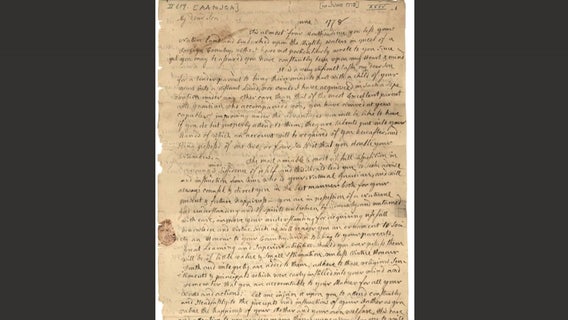 My dear Son June 1778
Tis almost four Months since you left your
Native land and Embarked upon the Mighty waters in quest of a
Foreign Country. Altho I have not perticuliarly wrote to you since
yet you may be assured you have constantly been upon my Heart & mind
It is a very dificult task my dear son
for a tender parent to bring their mind to part with a child of your
years into a distant Land, nor could I have acquiesced in such a sepe
ration under any other care than that of the most Excellent parent
and Guardian who accompanied you, you have arrived at years
capable of improving under the advantages you will be like to have
if you do but properly attend to them, they are talents put into your
Hands of which an account will be required of you hereafter, and
being possessd of one, two, or four, see to it that you double your
numbers
The most amiable & most usefull disposition in
a young mind is diffidence of itself, and this should lead you to seek advise
and instruction from him who is your natural Guardian, and will
always counsel & direct you in the best manner both for your
present & future happiness. you are in possession of a natural
good understanding and of spirits unbroken by adversity, and untamed
with care, improve your understanding for acquiring usefull
knowledge and virtue such as will render you an ornament to soci
ety an Honour to your Country, and a Blessing to your parents,
Great Learning and superior abilities, should you ever possess them
will be of little value & small Estimation, unless Virtue Honour
Truth and integrety are added to them, adhere to those religious Sen
timents & principals which were early instilled into your mind and
remember that you are accountable to your Maker for all your
words and actions. Let me injoin it upon you to attend constantly
and steadfastly to the precepts and instructions of your Father as you
value the happiness of your Mother and your own welfare. His care